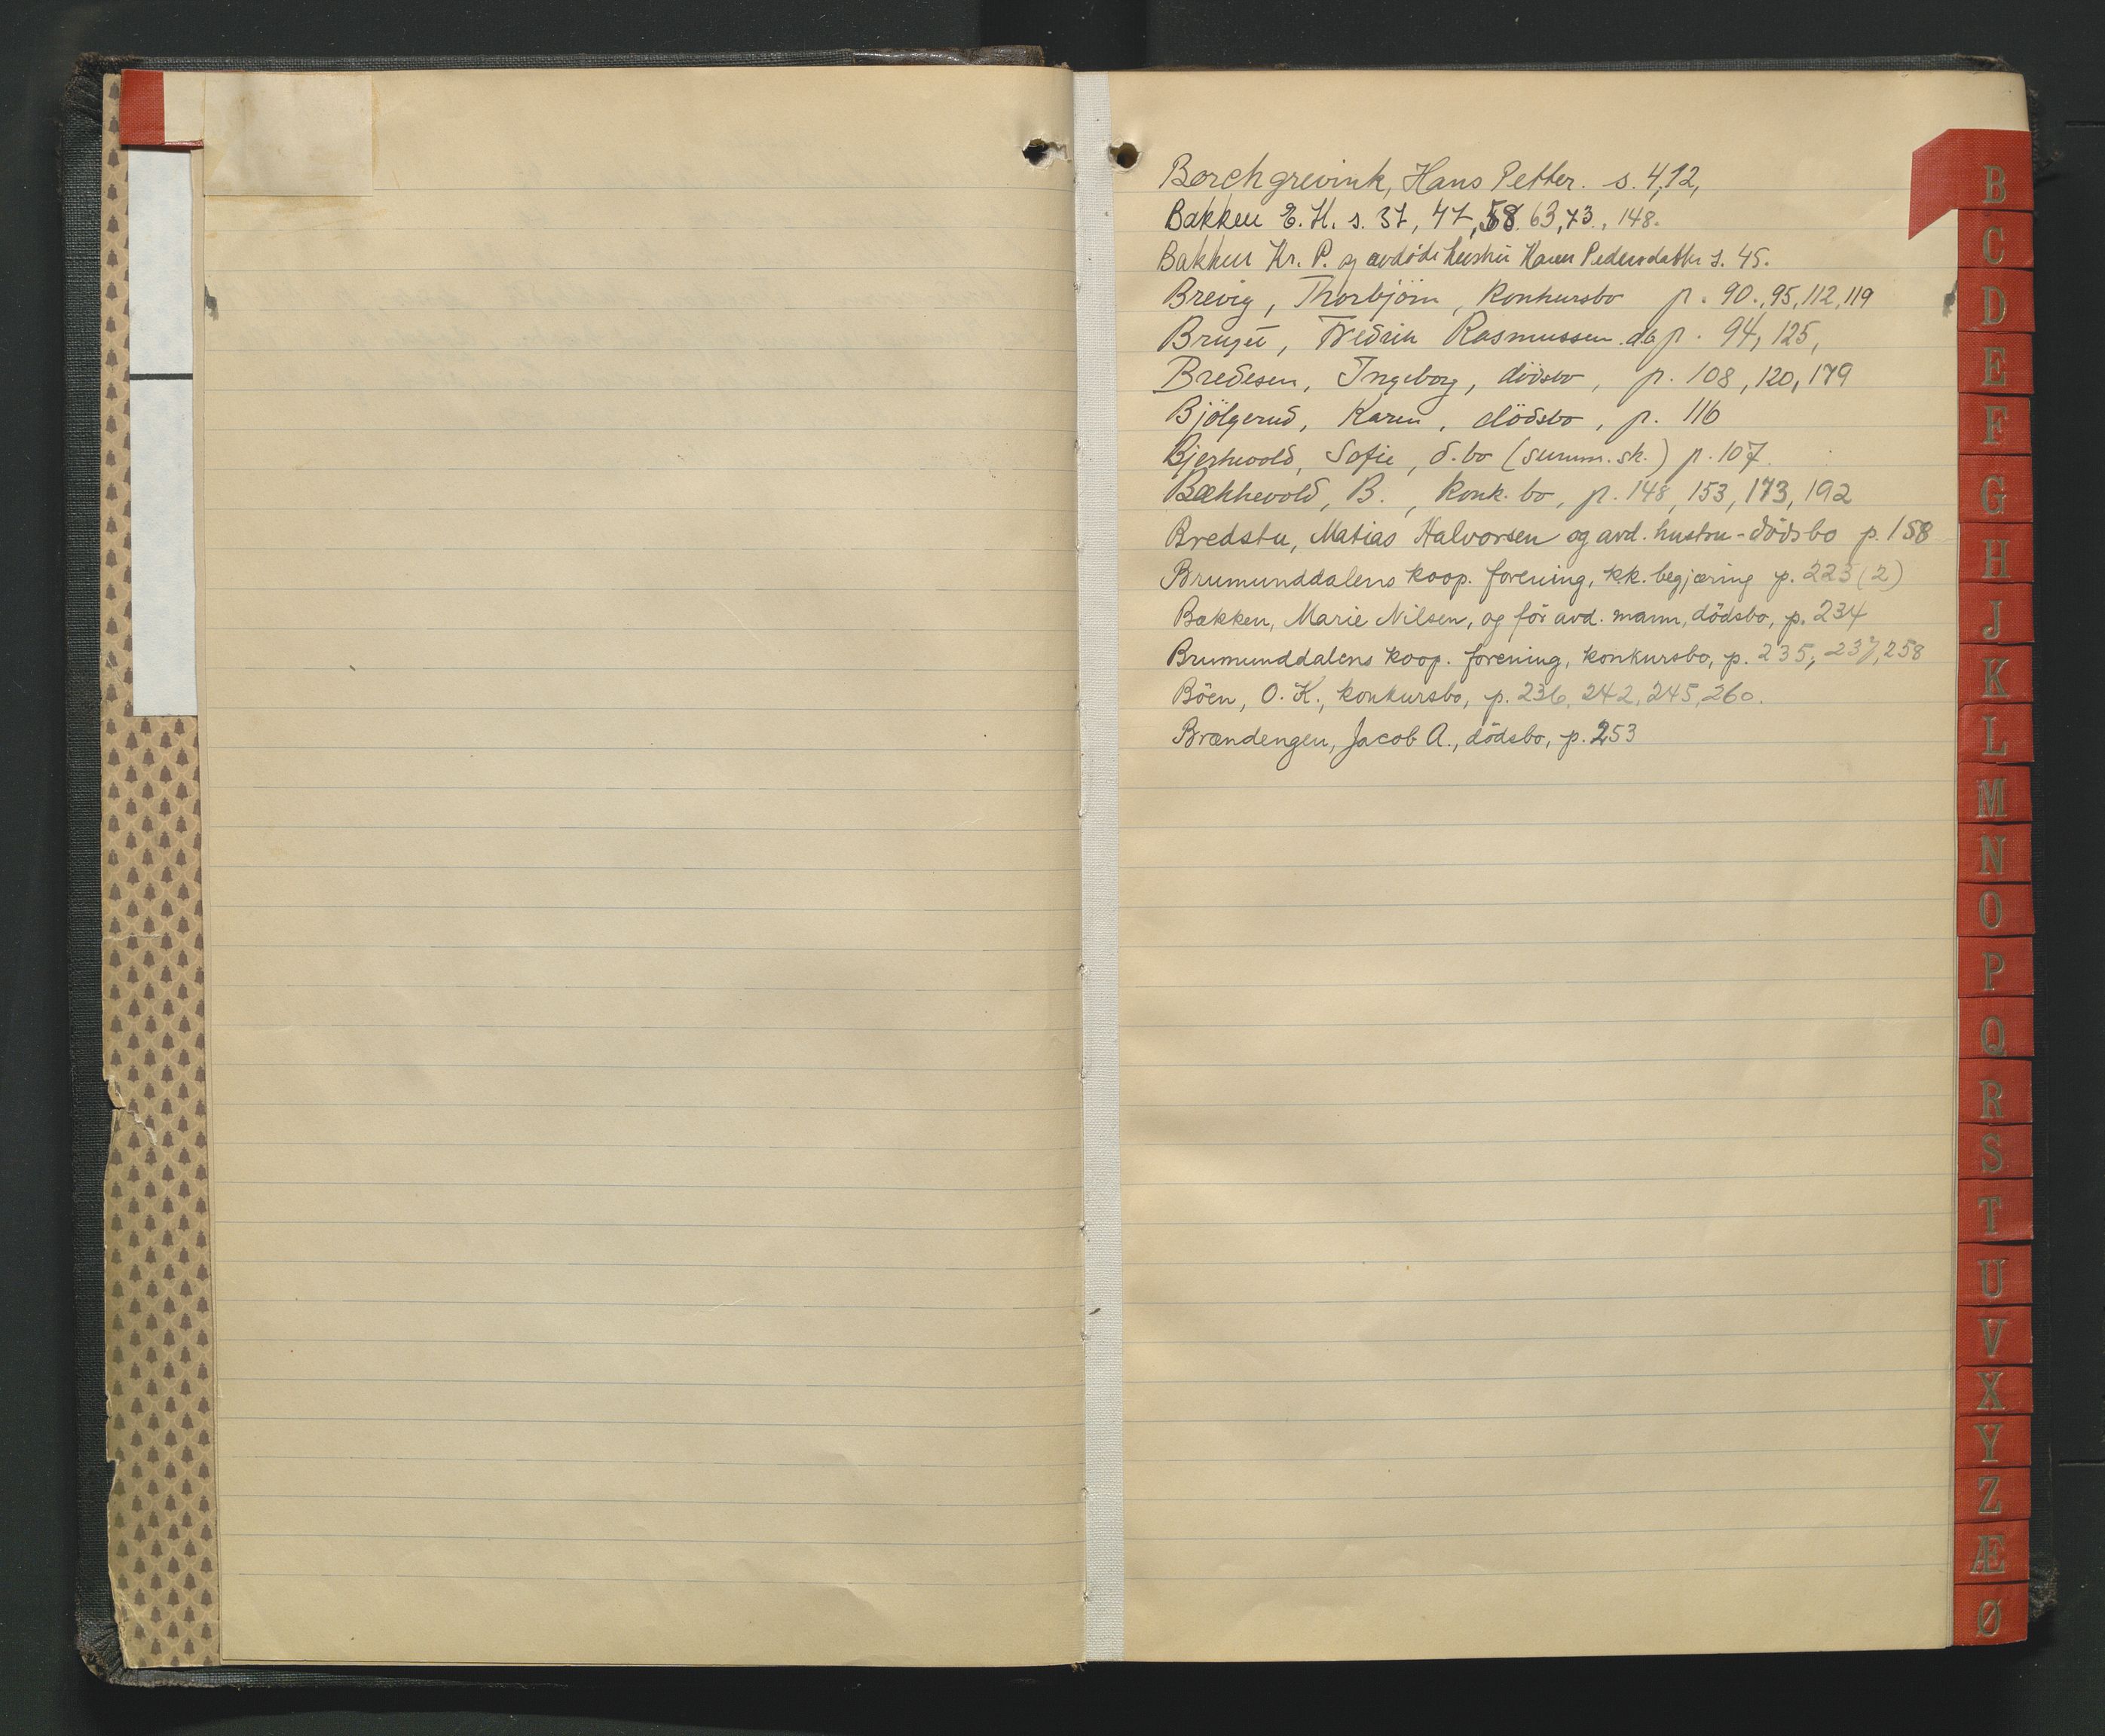 Borchgrevink, Hans Petter. s. 4,12,
Bakken E. H. s. 37, 47, 58. 63, 73., 148.
Bakken Kr. P. og avdöde hustru Karen Pedersdatter s. 45.
Brevig, Thorbjörn, konkursbo p. 90., 95, 112, 119
Fredrik Rasmussen. db p. 94, 125,
Bredesen, Ingeborg, dödsbo, p. 108, 120, 179
Bjölgerud, Karen, dödsbo, p. 116
Bjerkvold, Sofie, d.bo (summ. sk.) p. 107.
Bækkevold, B., konk. bo, p. 148, 153, 173, 192
Bredstu, Matias Halvorsen og avd. hustru - dödsbo p. 158
Brumunddalens koop. forening, kk. begjæring p. 223 (2)
Bakken, Marie Nilsen, og för avd. mann, dödsbo, p. 234
Brumunddalens koop. forening, konkursbo, p. 235, 237, 258
Böen, O. K., konkursbo, p. 236, 242, 245, 260.
Brændengen, Jacob A., dödsbo, p. 253
B
C
D
E
F
G
H
J
K
L
M
N
O
P
Q
R
S
T
U
V
X
Y
Z
Æ
Ø